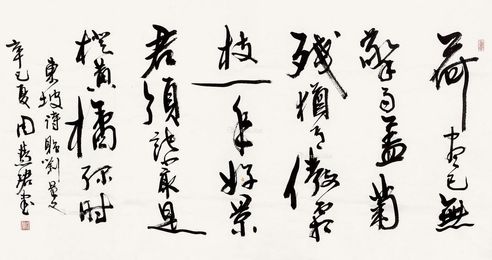 荷盡已無
擎雨蓋菊
殘猶有傲霜
枝一年好景
君須記最是
橙黃橘綠時
東坡詩贈劉景文
辛巳夏周慧珺書